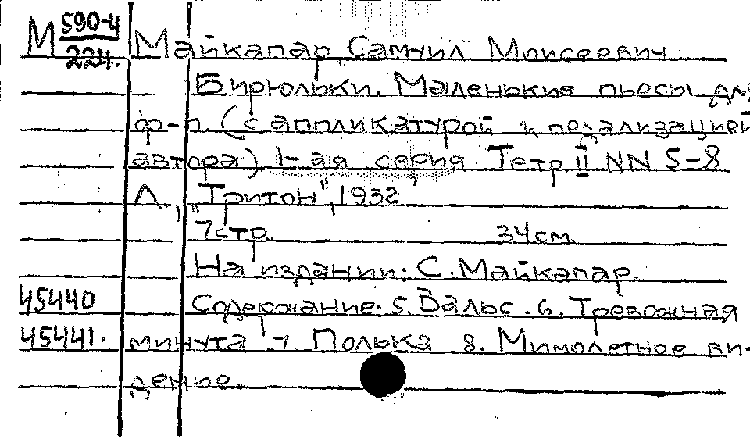 М 590-4
224.
Майкапар, Самуил Моисеевич
Бирюльки. Маленькие пьесы для
ф-п. (с аппликатурой и педализацией
автора) 1-ая серия Тетр II NN 5-8
Л., "Тритон", 1932
7 стр. 34 см.
На издании: С. Майкапар.
45440 Содержание: 5. Вальс. 6. Тревожная
45441. минута 7 Полька 8. Мимолетное ви-
дение.